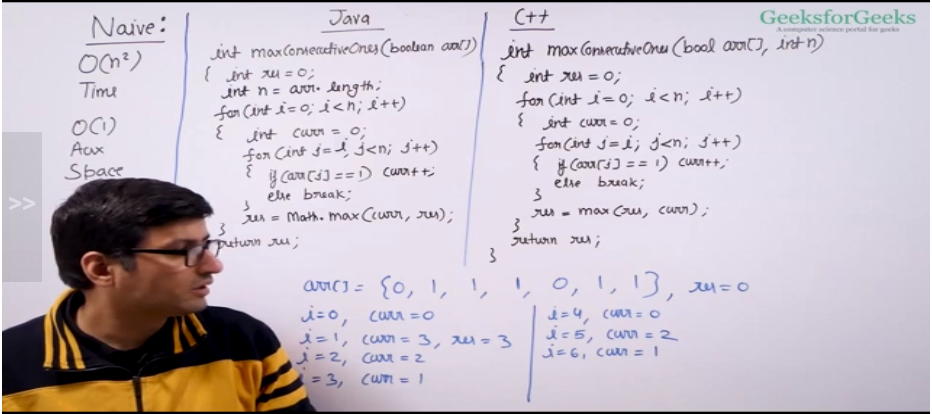 GeeksforGeeks
A computer science portal for geeks
Naive:
O(n²)
Time
O(1)
Aux
Space
>>
Java
int maxConsecutiveOnes(boolean arr[])
{ int res = 0;
int n = arr.length;
for(int i=0; i<n; i++)
{ int curr = 0;
for(int j=i, j<n; j++)
{ if(arr[j]==1) curr++;
else break;
}
res = Math.max(curr, res);
}
return res;
C++
int maxConsecutiveOnes(bool arr[], int n)
{ int res = 0;
for(int i=0; i<n; i++)
{ int curr = 0;
for(int j=i; j<n; j++)
{ if(arr[j] == 1) curr++;
else break;
}
res = max(res, curr);
}
return res;
}
arr[] = {0, 1, 1, 1, 0, 1, 1}, res=0
i=0, curr=0
i=1, curr=3, res=3
i=2, curr=2
=3, curr=1
i=4, curr=0
i=5, curr=2
i=6, curr=1